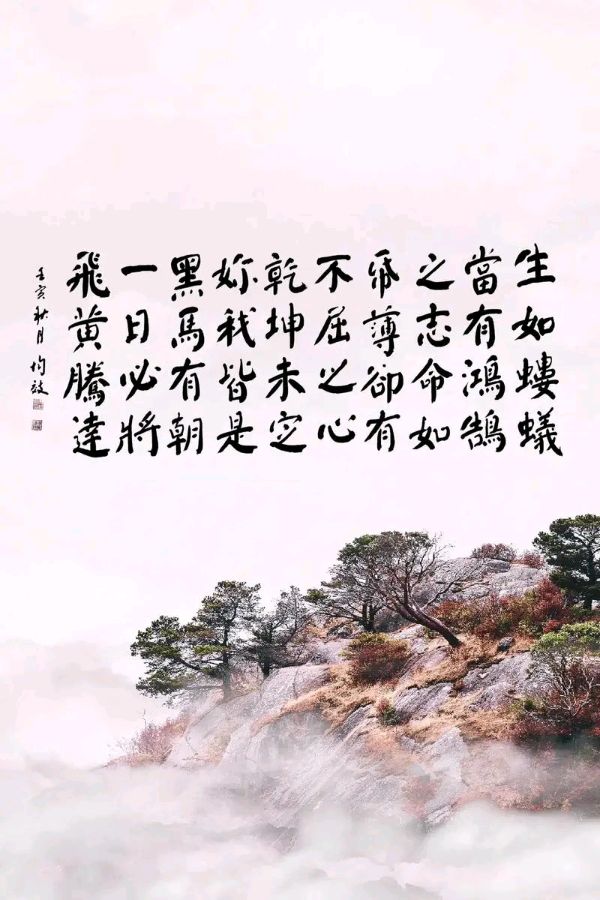 生如螻蟻
當有鴻鵠
之志命如
帋薄卻有
不屈之心
乾坤未定
妳我皆是
黑馬有朝
一日必將
飛黃騰達
壬寅秋月